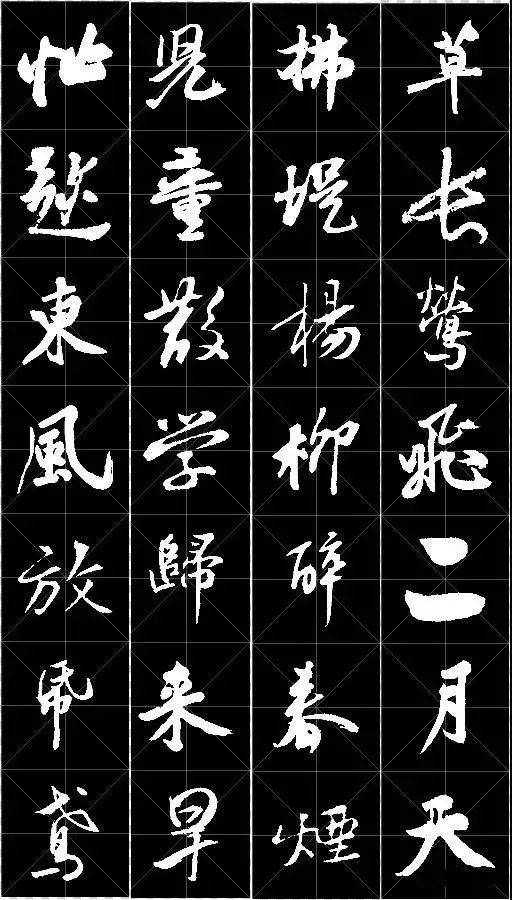 草长鶯飛二月天
拂堤楊柳醉春煙
兒童散学歸来早
忙趁東風放帋鳶